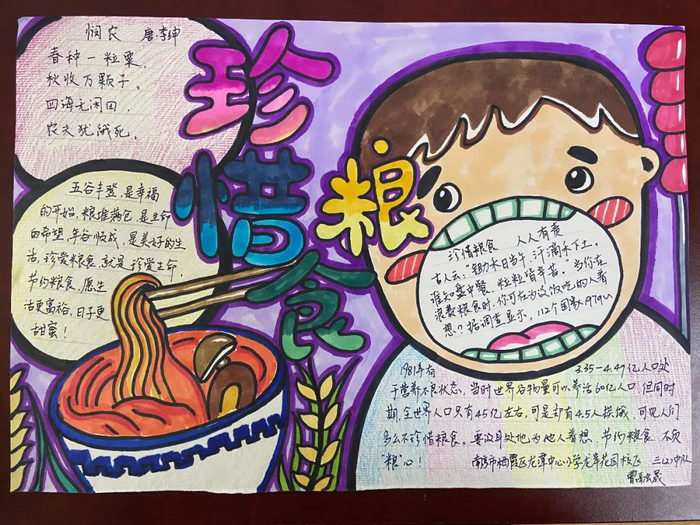 悯农 唐·李绅
春种一粒粟，
秋收万颗子。
四海无闲田，
农夫犹饿死。
珍
惜
粮
食
五谷丰登，是幸福
的开始，粮堆满仓，是生命
的希望，年谷顺成，是美好的生
活，珍爱粮食，就是珍爱生命
节约粮食，愿生
活更富裕，日子更
甜蜜！
珍惜粮食 人人有责
古人云：锄禾日当午，汗滴禾下土。
谁知盘中餐，粒粒皆辛苦。当你在
浪费粮食时，你可在为没饭吃的人着
想？据调查显示，112个国家从1974
981年有 3.35-4.49亿人口处
于营养不良状态，当时世界谷物量可以养活60亿人口，但同时
期，全世界人口只有45亿左右，可是却有4.5人挨饿，可见人们
多么不珍惜粮食，要设身处地为他人着想，节约粮食，不负
"粮"心！
南湾市栖霞区龙潭中心小学龙岸花园校区 三(2)中队